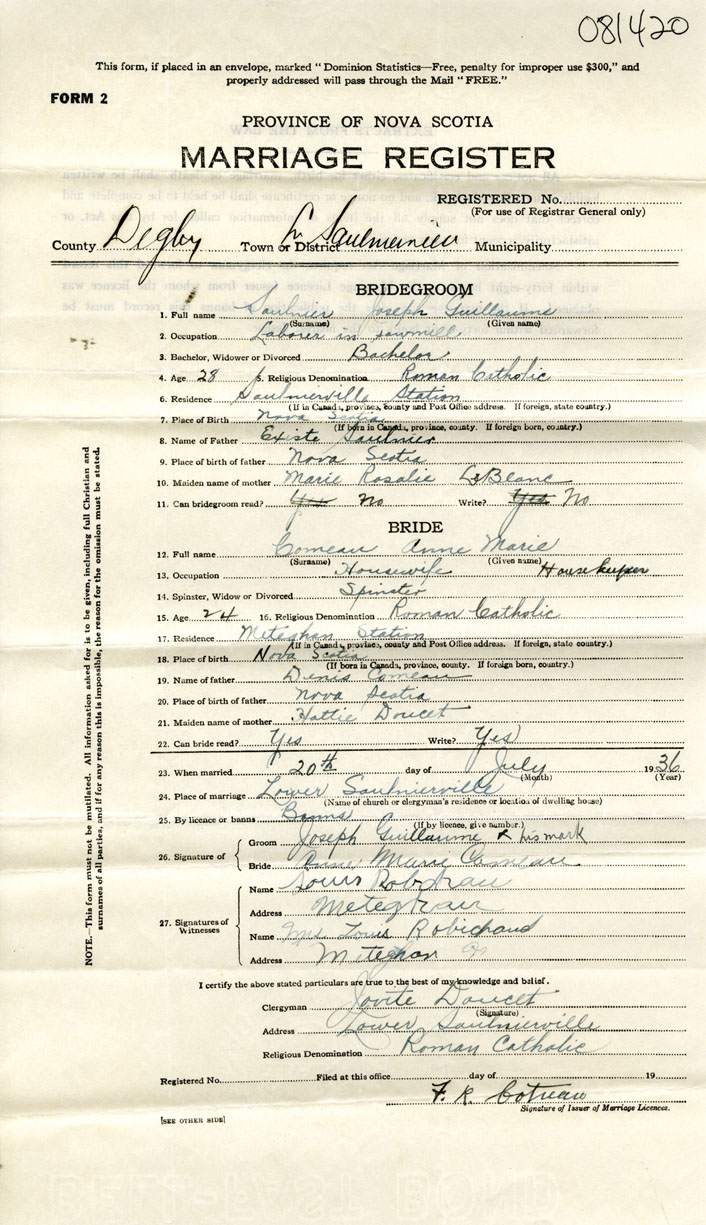 081420
This form, if placed in an envelope, marked "Dominion Statistics—Free, penalty for improper use $300," and
properly addressed will pass through the Mail "FREE."
FORM 2
PROVINCE OF NOVA SCOTIA
MARRIAGE REGISTER
REGISTERED No.
(For use of Registrar General only)
County Digby Town or District L. Saulnierville Municipality
BRIDEGROOM
1. Full name Saulnier Joseph Guillaume
(Surname) (Given name)
2. Occupation Laborer in sawmill
3. Bachelor, Widower or Divorced Bachelor
4. Age 28 5. Religious Denomination Roman Catholic
6. Residence Saulnierville Station
(If in Canada, province, county and Post Office address. If foreign, state country.)
7. Place of Birth Nova Scotia
(If born in Canada, province, county. If foreign born, country.)
8. Name of Father Existe Saulnier
9. Place of birth of father Nova Scotia
10. Maiden name of mother Marie Rosalie LeBlanc
11. Can bridegroom read? Yes No Write? Yes No
BRIDE
12. Full name Comeau Anne Marie
(Surname) (Given name)
13. Occupation Housewife Housekeeper
14. Spinster, Widow or Divorced Spinster
15. Age 24 16. Religious Denomination Roman Catholic
17. Residence Meteghan Station
(If in Canada, province, county and Post Office address. If foreign, state country.)
18. Place of birth Nova Scotia
(If born in Canada, province, county. If foreign born, country.)
19. Name of father Denis Comeau
20. Place of birth of father Nova Scotia
21. Maiden name of mother Hattie Doucet
22. Can bride read? Yes Write? Yes
23. When married 20th day of July 1936
(Month) (Year)
24. Place of marriage Lower Saulnierville
(Name of church or clergyman's residence or location of dwelling house)
25. By licence or banns Banns
(If by licence, give number.)
26. Signature of
Groom Joseph Guillaume X his mark
Bride Anne Marie Comeau
27. Signatures of Witnesses
Name Louis
Address
Name Mrs Louis Robichaud
Address Meteghan
I certify the above stated particulars are true to the best of my knowledge and belief.
Clergyman Jovite Doucet
(Signature)
Address Lower Saulnierville
Religious Denomination Roman Catholic
Registered No. Filed at this office day of 19
F. R.
Signature of Issuer of Marriage Licences.
[SEE OTHER SIDE]
NOTE.—This form must not be mutilated. All information asked for is to be given, including full Christian and
surnames of all parties, and if for any reason this is impossible, the reason for the omission must be stated.